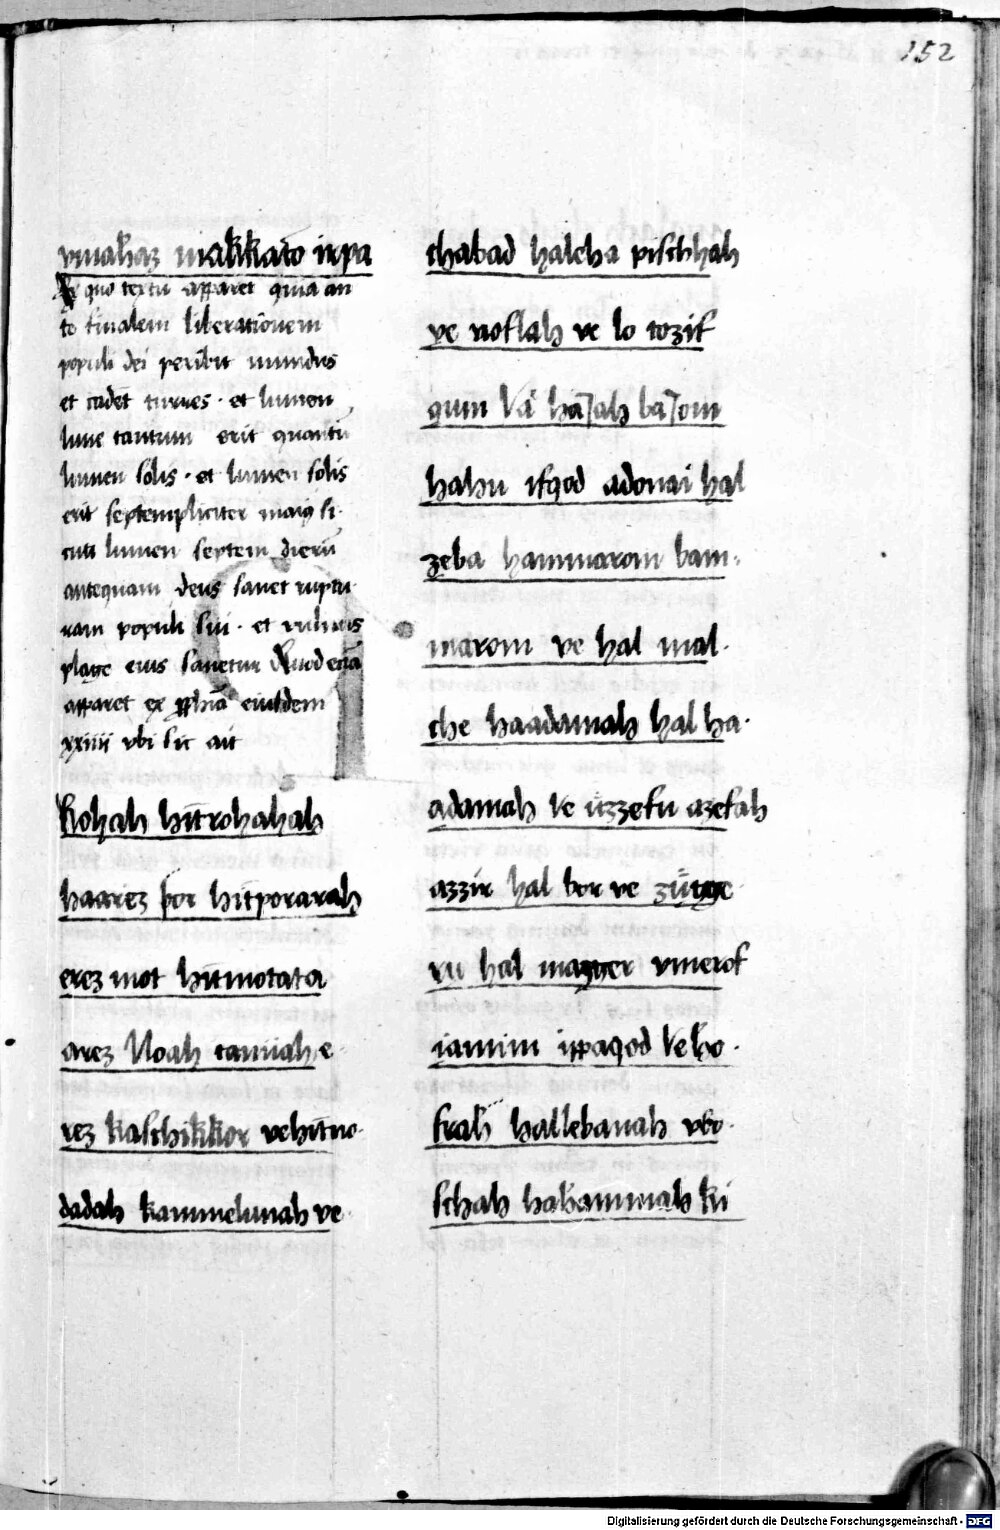 152
vmahaz makkato irpa
Ex quo textu apparet quia an
te finalem liberationem
populi dei peribit mundus
et cadēt turres · et lumen
lune tantum erit quantū
lumen solis · et lumen solis
erit septempliciter maiꝰ si
cuti lumen septem dierū
antequam deus sanet ruptu
ram populi sui · et vulneris
plage eius sanetur Quod etiā
apparet ex ꝓphia eiusdem
xxiiii vbi sic ait
Rohah hitrohahah
haarez por hitporarah
erez mot hitmotata
arez Noah tanuah e
rez kaschikkor vehitno
dadah kammelunah ve
chabad haleha pischhah
ve noflah ve lo tozif
qum Va haiah baiom
hahu ifqod adonai hal
zeba hammarom bam
marom ve hal mal
che haadamah hal ha
adamah Ve uzzefu azefah
azzir hal bor ve
ru hal masger vmerof
iamim ippaqod Veho
frah hallebanah vbo
schah hahammah ki
Digitalisierung gefördert durch die Deutsche Forschungsgemeinschaft - DFG